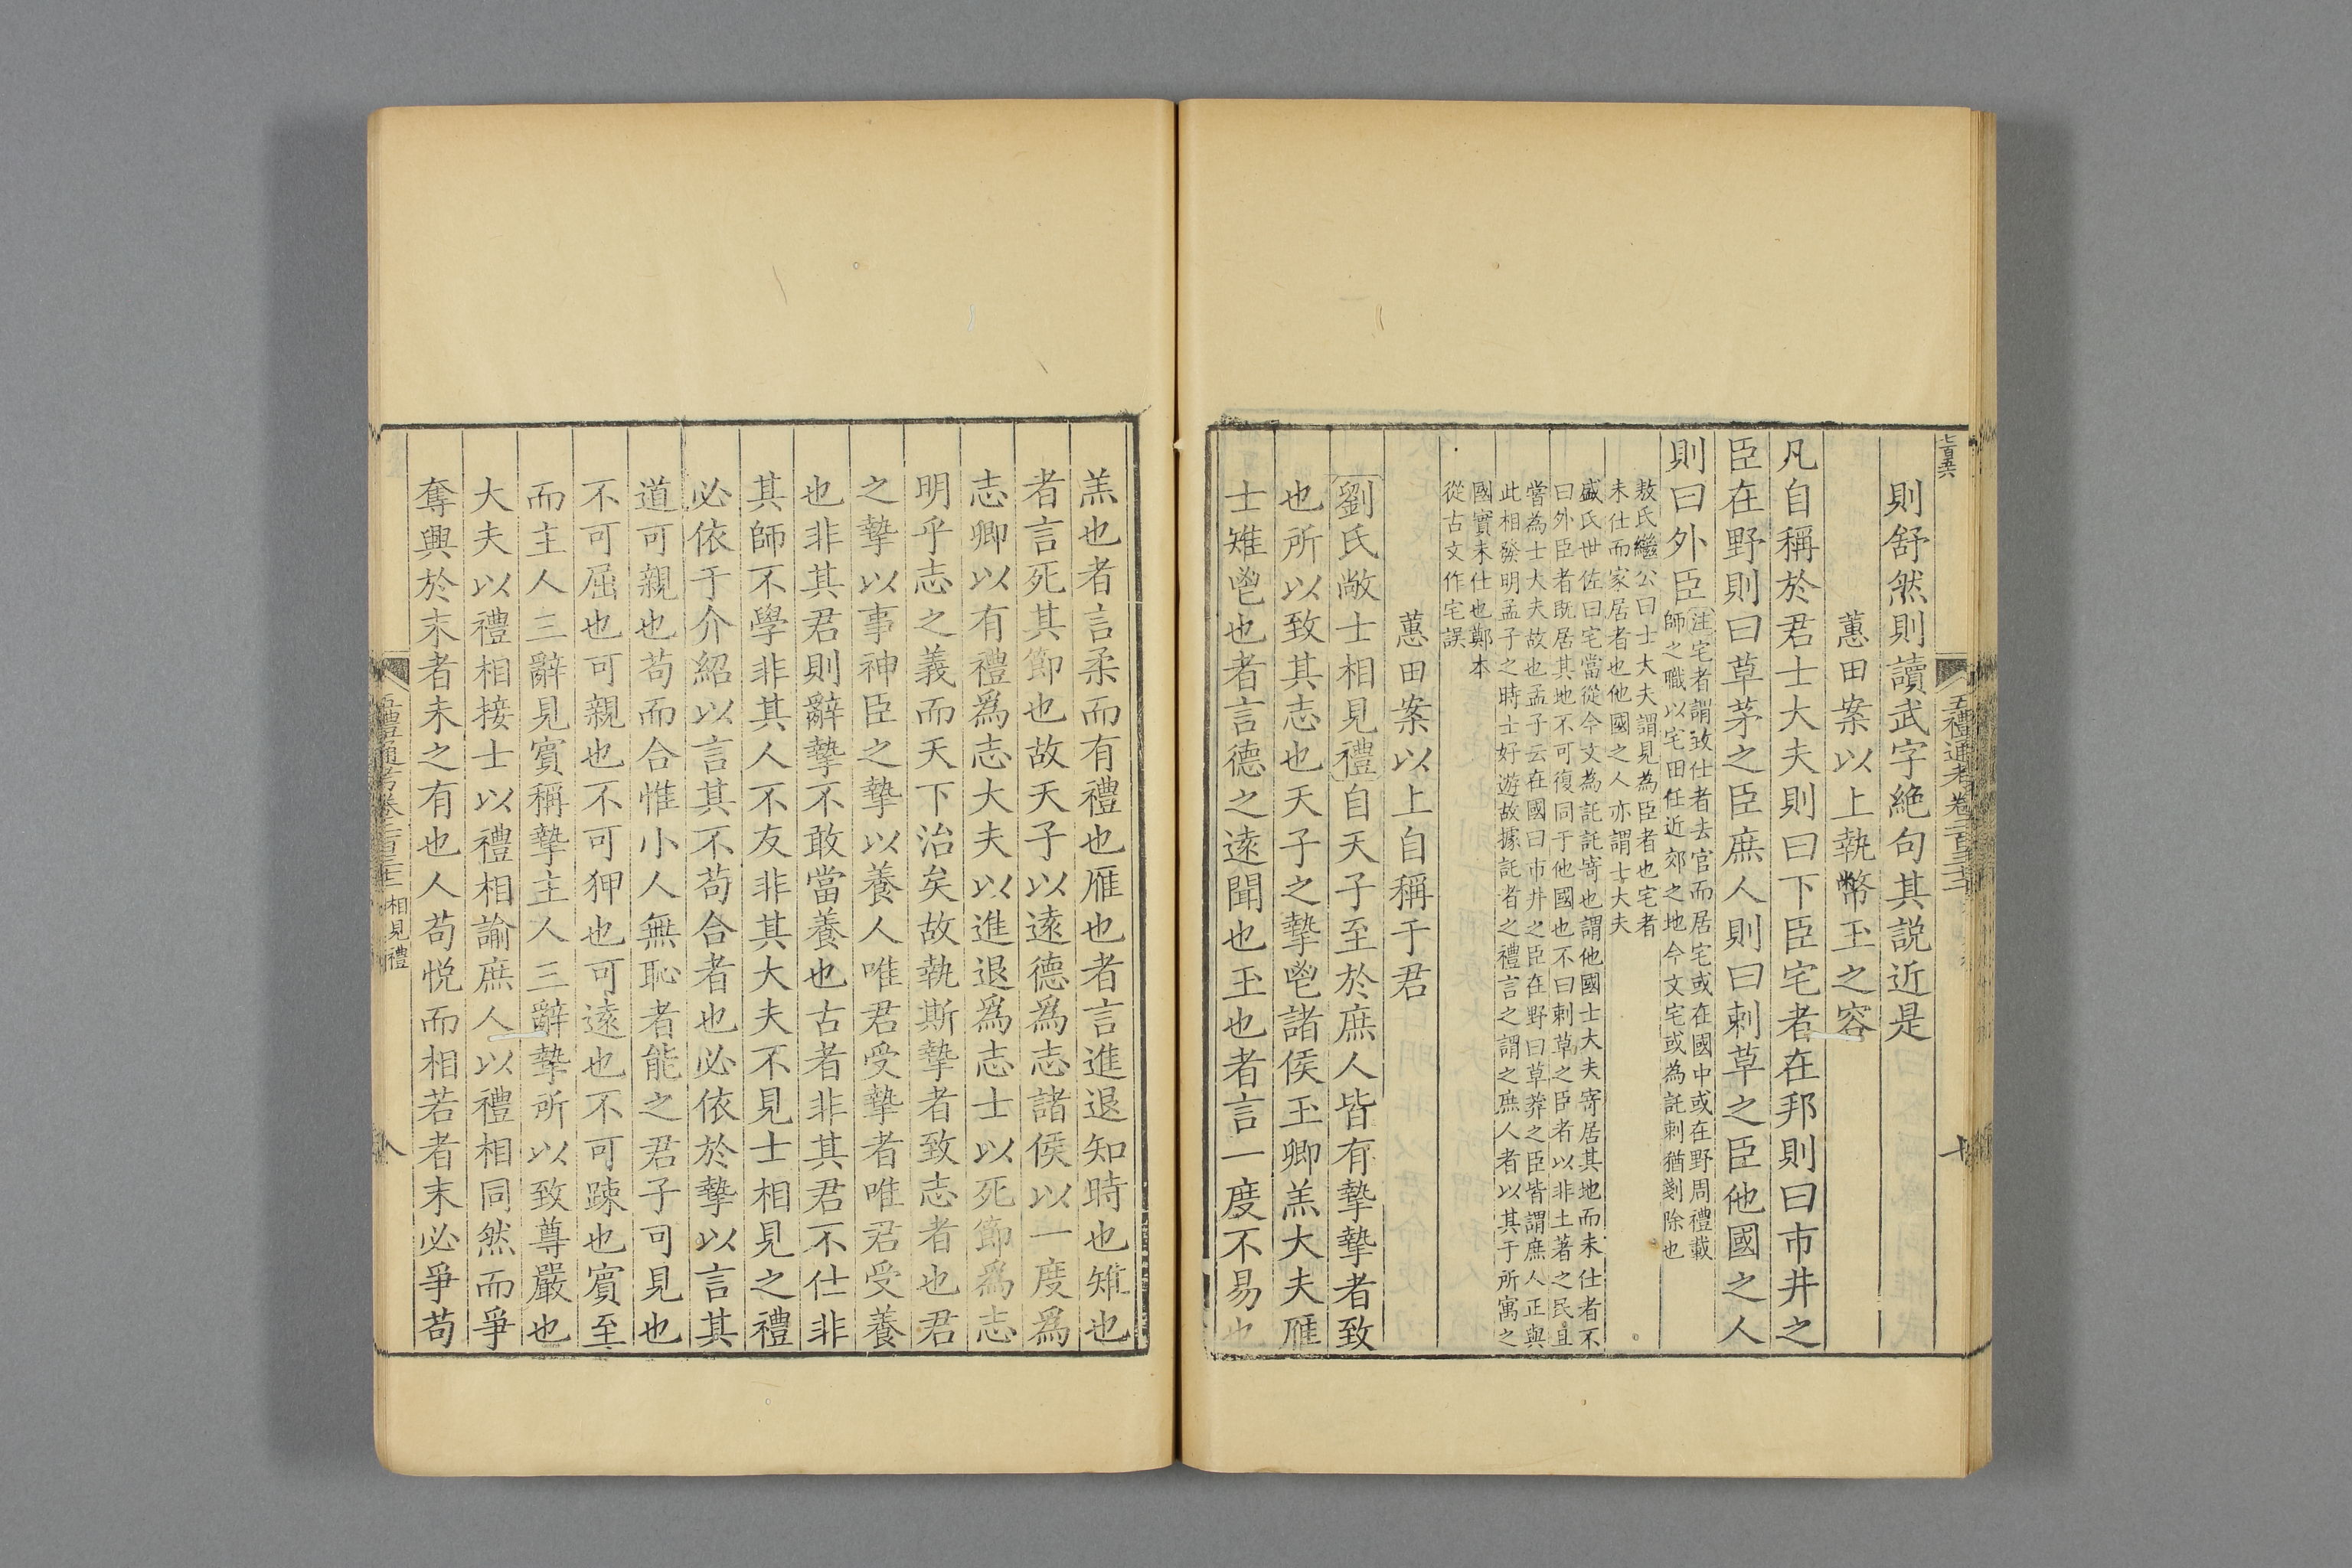 七百五六
五禮通考卷二百三十二
則舒然則讀武字絶句其説近是
蕙田案以上執幣玉之容
凡自稱於君士大夫則曰下臣宅者在邦則曰市井之
臣在野則曰草茅之臣庶人則曰刺草之臣他國之人
則曰外臣
注宅者謂致仕者去官而居宅或在國中或在野周禮載
師之職以宅田任近郊之地今文宅或為託刺猶剗除也
敖氏繼公曰士大夫謂見為臣者也宅者
未仕而家居者也他國之人亦謂士大夫
盛氏世佐曰宅當從今文為託託寄也謂他國士大夫寄居其地而未仕者不
曰外臣者既居其地不可復同于他國也不曰刺草之臣者以非土著之民且
嘗為士大夫故也孟子云在國曰市井之臣在野曰草莽之臣皆謂庶人正與
此相發明孟子之時士好遊故據託者之禮言之謂之庶人者以其于所寓之
國實未仕也鄭本
從古文作宅誤
蕙田案以上自稱于君
劉氏敞士相見禮自天子至於庶人皆有摯摯者致
也所以致其志也天子之摯鬯諸侯玉卿羔大夫雁
士雉鬯也者言德之遠聞也玉也者言一度不易也
羔也者言柔而有禮也雁也者言進退知時也雉也
者言死其節也故天子以遠德為志諸侯以一度爲
志卿以有禮爲志大夫以進退爲志士以死節爲志
明乎志之義而天下治矣故執斯摯者致志者也君
之摯以事神臣之摯以養人唯君受摯者唯君受養
也非其君則辭摯不敢當養也古者非其君不仕非
其師不學非其人不友非其大夫不見士相見之禮
必依于介紹以言其不苟合者也必依於摯以言其
道可親也苟而合惟小人無恥者能之君子可見也
不可屈也可親也不可狎也可遠也不可踈也賓至
而主人三辭見賓稱摯主人三辭摯所以致尊嚴也
大夫以禮相接士以禮相諭庶人以禮相同然而爭
奪興於末者未之有也人苟悦而相若者末必爭苟
五禮通考卷二百三十二 相見禮